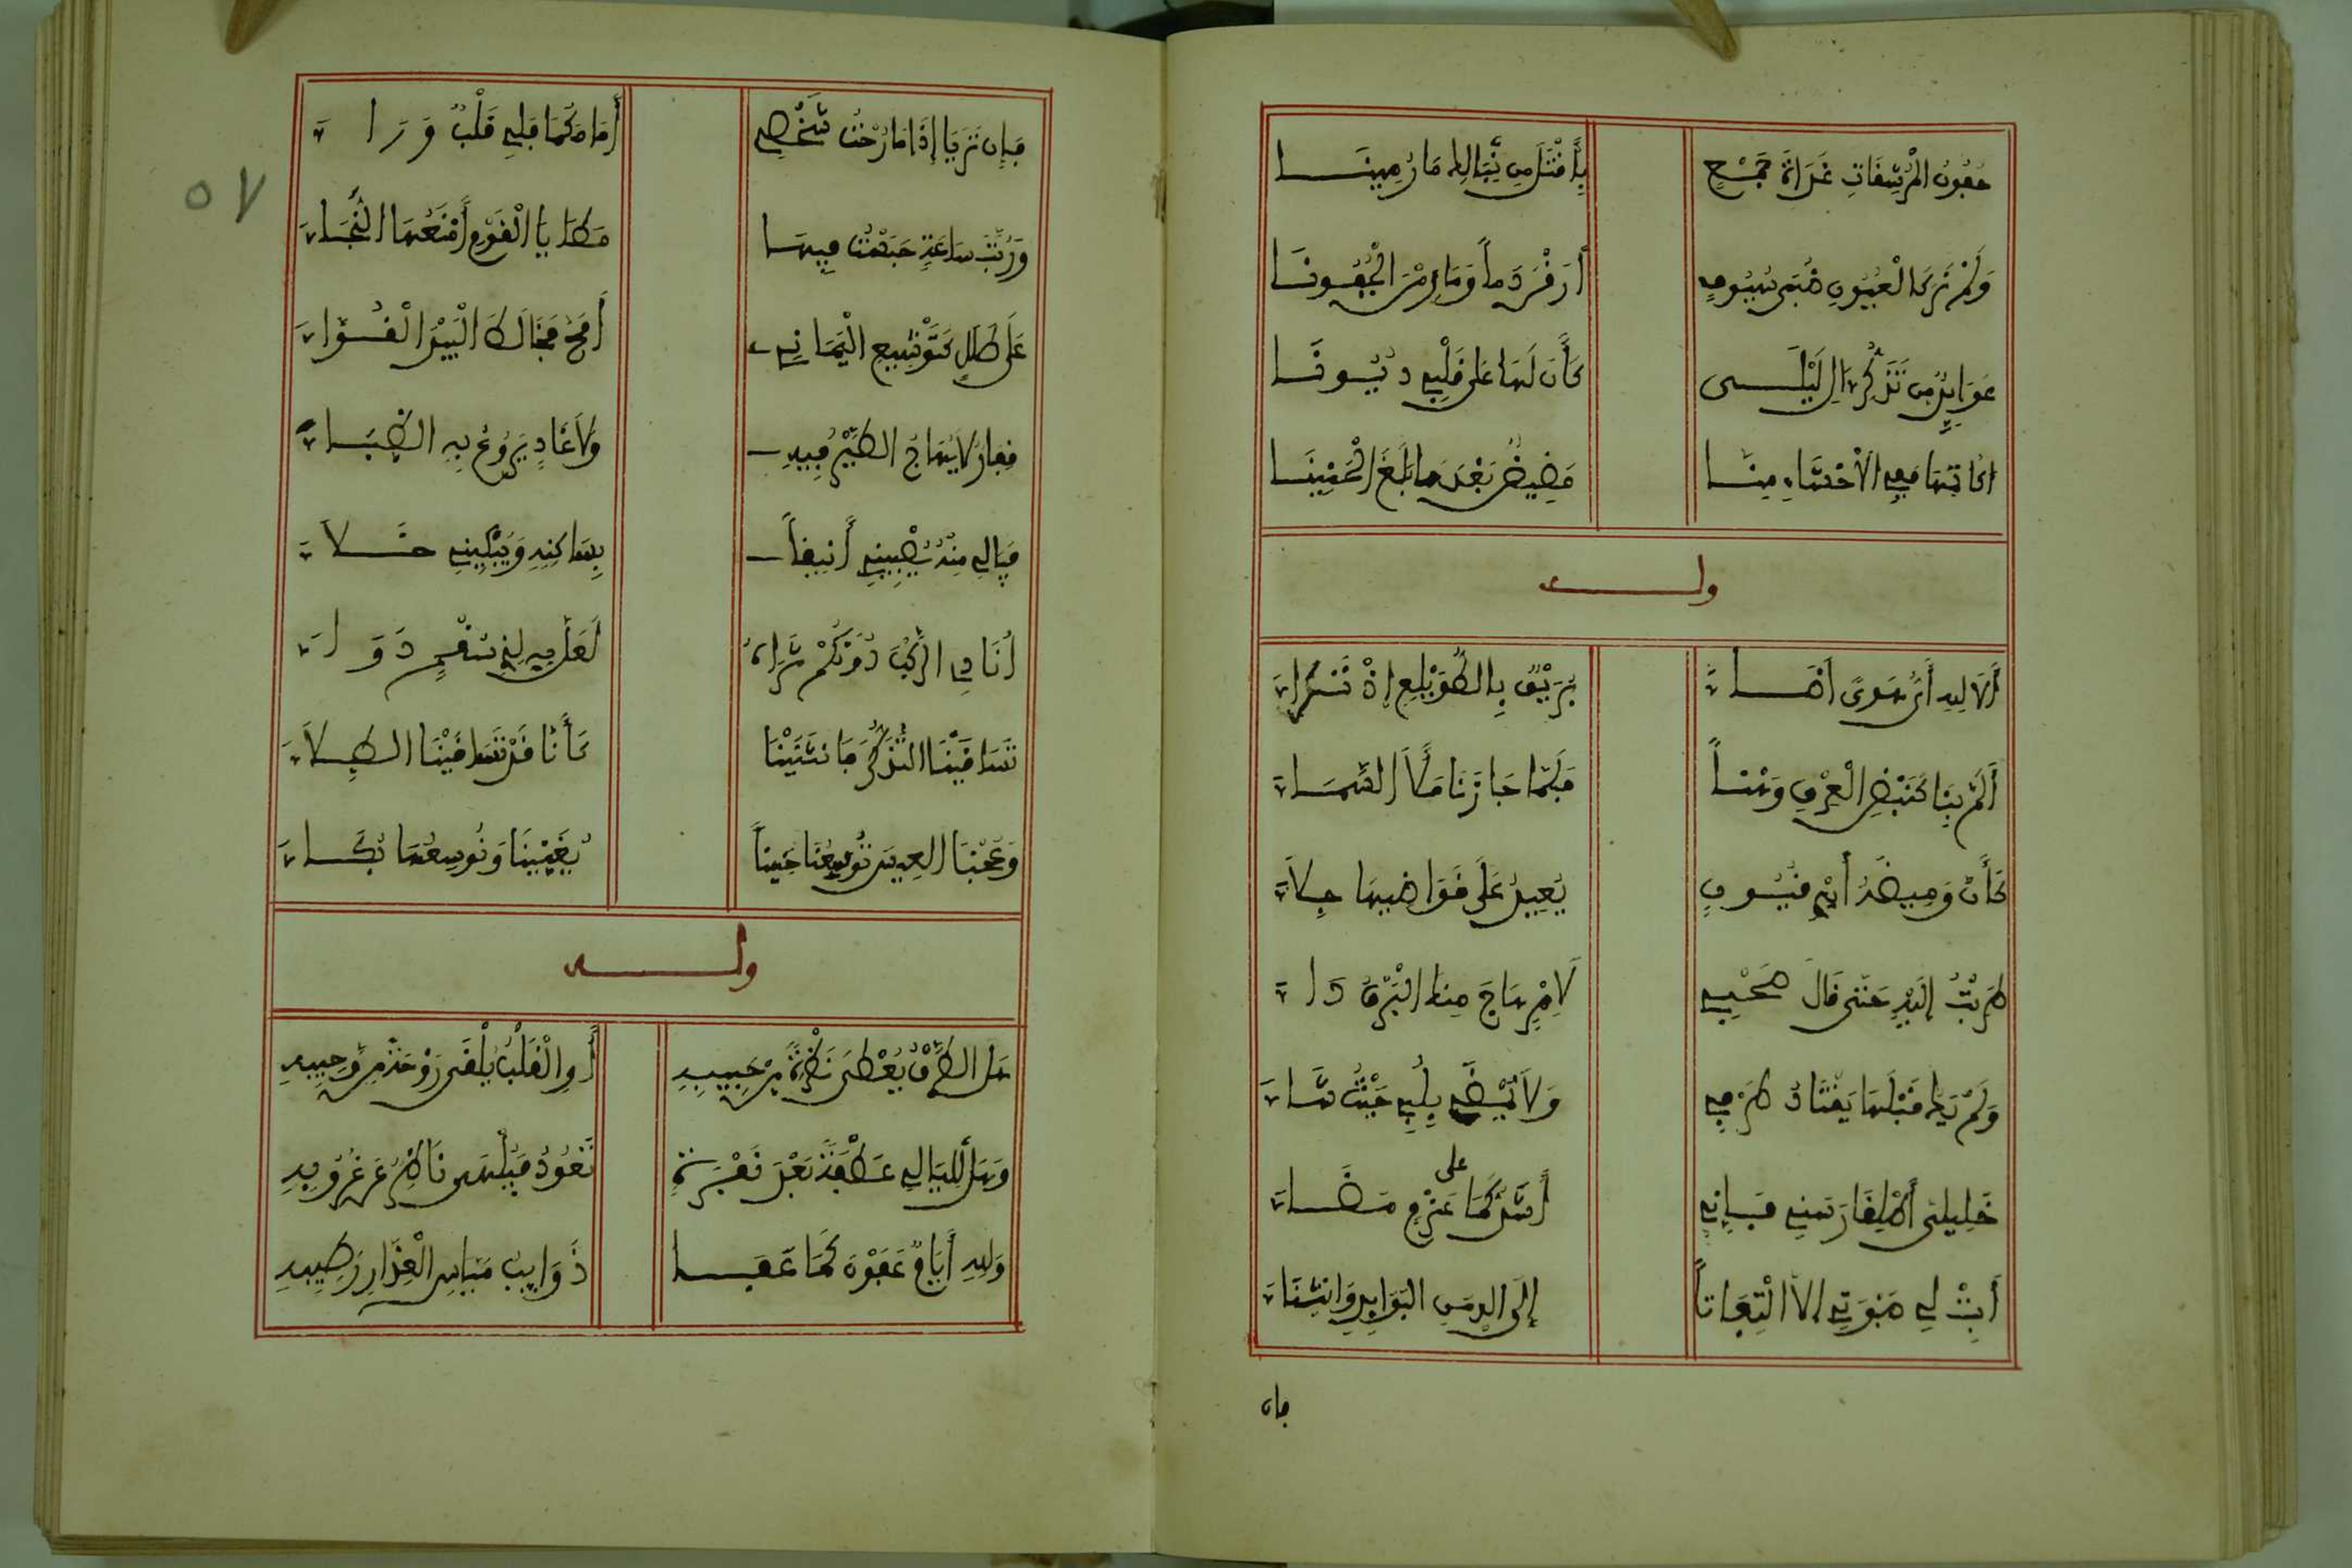 جفون المرشفات غداة جمع بأقتل من نبالك ما رمينا
ولم نر كالعيون ظبى سيوف أرقن دما وما رمن الجفونا
عوايد من تذكر ال ليلى كأن لها على قلبي ديونا
اكاتمها مع الأحشاء منا مغيض بعدما بلغ الحنينا
وله
ألا لله أي هوى أضاء بريق بالطويلع إذ تراءى
ألم بنا كنبض العرق وهنا فلما جازنا ملأ السماء
كأن وميضه أيدي قيون يعيد على قواضبها جلاء
طربت إليه حتى قال صحبي لأمر هاج منك البرق داء
ولم يك قبلها يقتاد طرفي ولا يمضي بلبي حيث شاء
خليلي أطلقا رسني فإني أشدكما على عزم مضاء
أبت لي صبوتي الا التفاتا إلى الدمن البوايد وانثناء
فان
فإن تريا إذا ما رحت شخصي أمامكما فلي قلب وراء
وربت ساعة حبست فيها مطايا القوم أمنعها النجاء
على طلل كتوشيع اليماني أمح فخالط البيد القواء
قفار لا يهاج الطير فيه ولا غاد يروع به الظباء
فيا لي منه يصبيني أنيقا بساكنه ويبكيني خلاء
أنادي الركب دونكم ثراه لعل به لذي سقم دواء
تساقينا التذكر فانثنينا كأنا قد تساقينا الطلاء
وعجنا العيس توسعنا حنينا يغنينا ونوسعها بكاء
وله
هل الطرف يعطى نظرة من حبيبه أو القلب يلقى روحة من وجيبه
وهل لليالي عطفة بعد نفرة تعود فيلهى ناظر عن غروبه
ولله أيام عفون كما عفا ذوايب مياس العذار رطيبه
٥٧